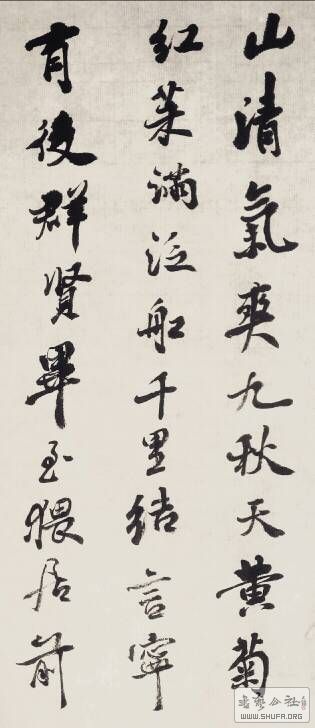 山清氣爽九秋天黄菊
紅茱滿泛船千里結言寧
有後群賢畢至猥居前
WWW.SHUFA.ORG